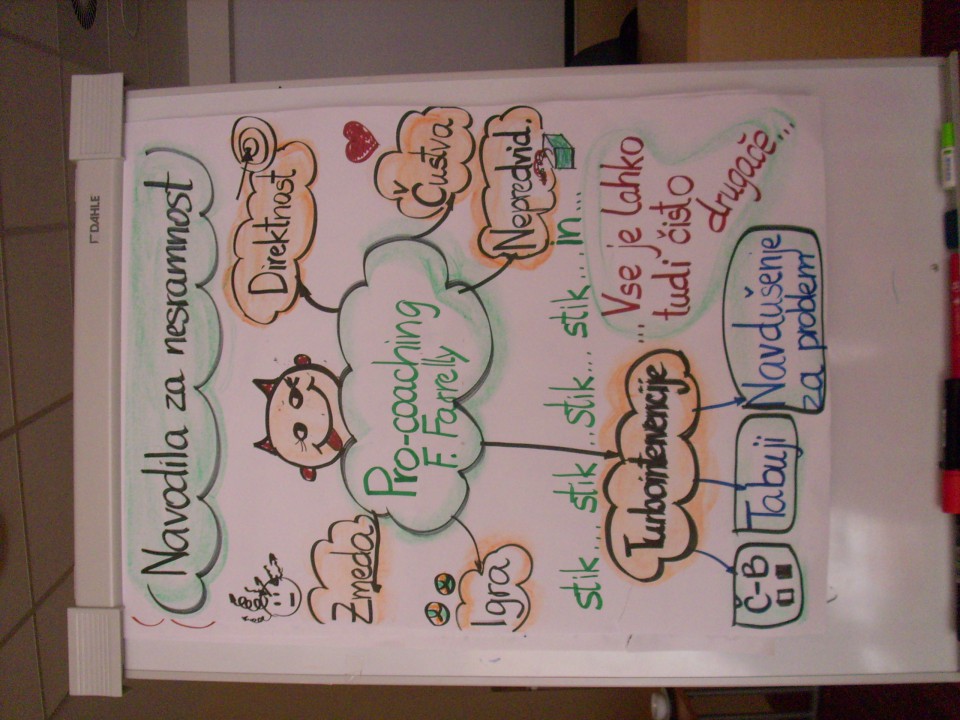 DAHLE
Navodila za nesramnost
Direktnost
Zmeda
Pro-coaching
F. Farrelly
Čustva
Igra
Nepredvid.
stik... stik... stik... stik... in...
Turbointervencije
... Vse je lahko
tudi čisto
drugače...
Č-B
Tabuji
Navdušenje
za problem